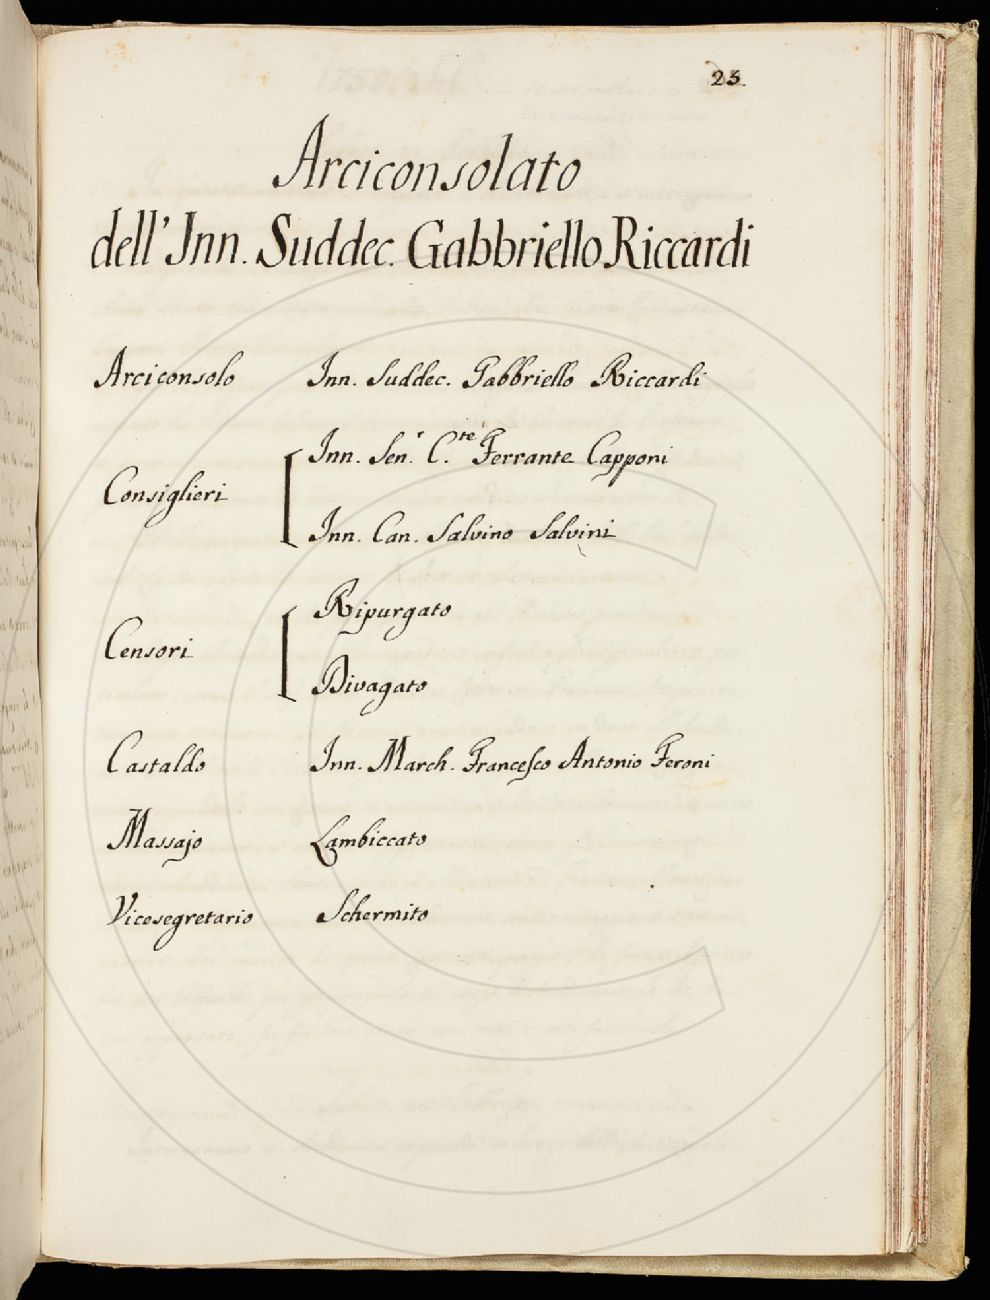 23.
Arciconsolato
dell' Inn. Suddec. Gabbriello Riccardi
Arciconsolo Inn. Suddec. Gabbriello Riccardi
Consiglieri
Inn. Sen.r C.te Ferrante Capponi
Inn. Can. Salvino Salvini
Censori
Ripurgato
Divagato
Castaldo Inn. March. Francesco Antonio Feroni
Massajo Lambiccato
Vicesegretario Schermito